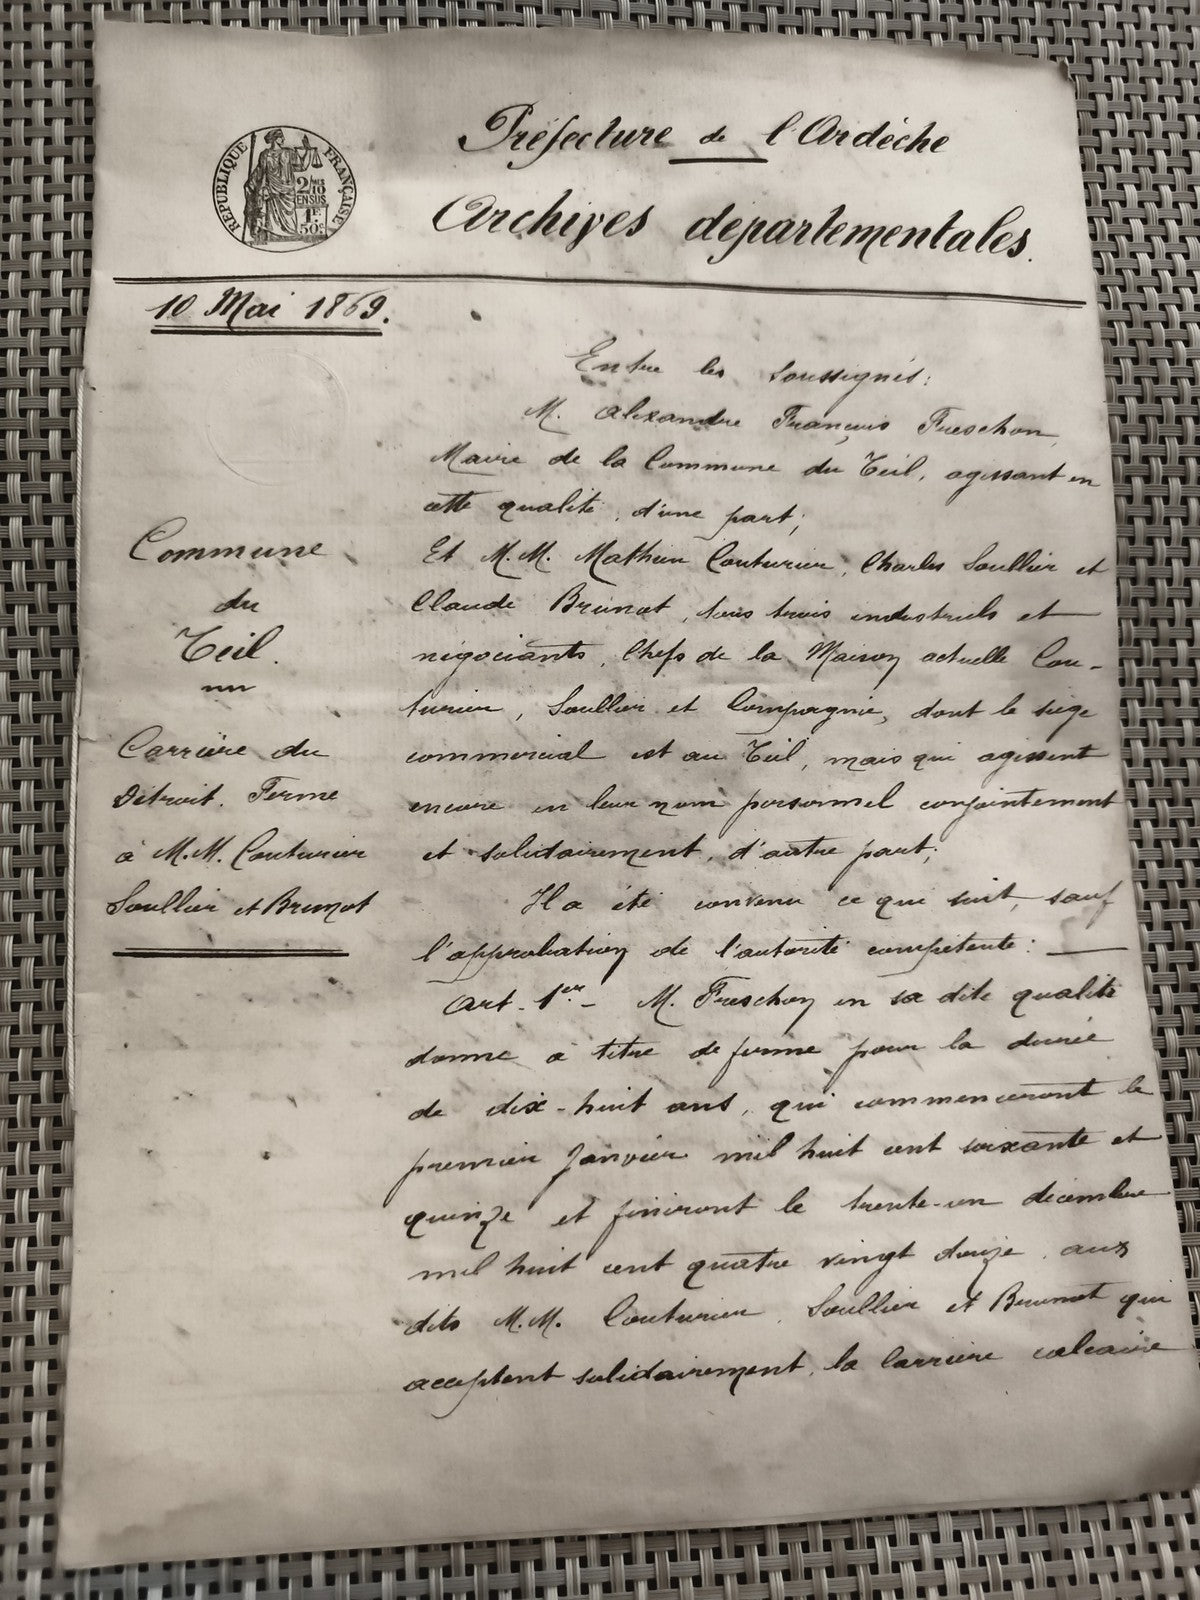 Préfecture de l'Ardèche
Archives départementales.
RÉPUBLIQUE FRANÇAISE
2/10
EN SUS
1F
50c
10 Mai 1869.
Commune
du
Teil.
Carrière du
Détroit. Ferme
à M.M. Couturier
Soullier et Brunot
Entre les soussignés:
M. Alexandre François Freschon
Maire de la Commune du Teil, agissant en
cette qualité, d'une part;
Et M.M. Mathieu Couturier, Charles Soullier et
Claude Brunot, tous trois industriels et
négociants, Chefs de la Maison actuelle Cou-
turier, Soullier et Compagnie, dont le siège
commercial est au Teil, mais qui agissent
encore en leur nom personnel conjointement
et solidairement, d'autre part;
Il a été convenu ce qui suit, sauf
l'approbation de l'autorité compétente:
Art. 1er - M. Freschon en sa dite qualité
donne à titre de ferme pour la durée
de dix-huit ans, qui commenceront le
premier Janvier mil huit cent soixante et
quinze et finiront le trente-un décembre
mil huit cent quatre vingt douze, aux
dits M.M. Couturier, Soullier et Brunot qui
acceptent solidairement, la Carrière calcaire